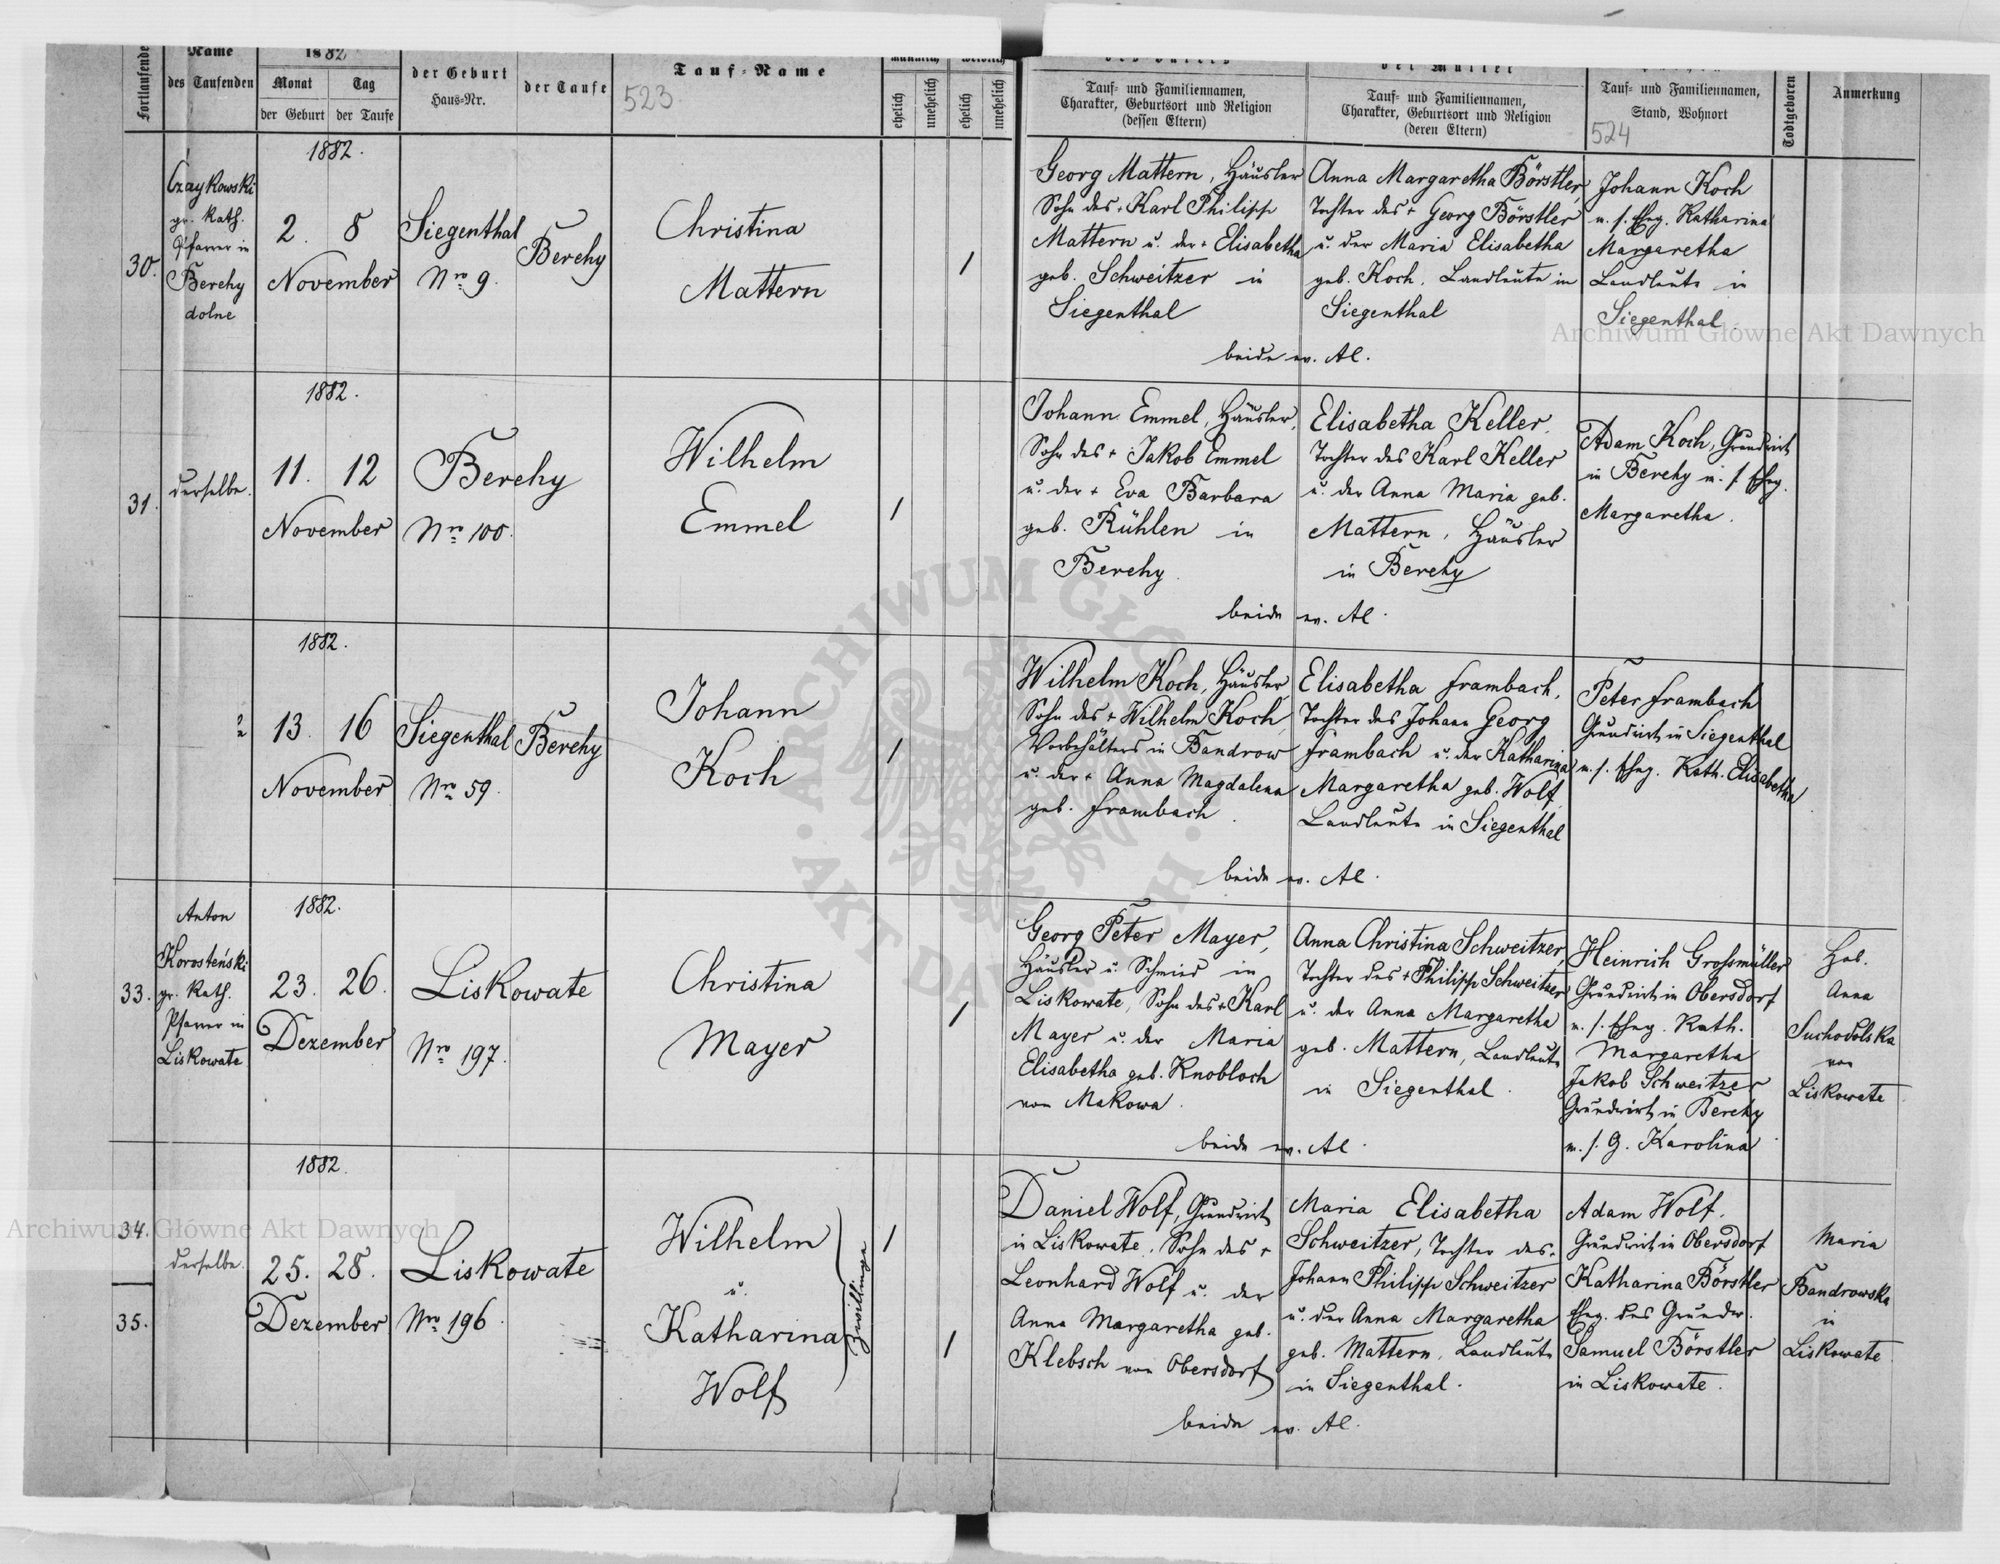 Fortlaufende
Name
des Taufenden
1882
Monat
Tag
der Geburt
der Taufe
der Geburt
Haus-Nr.
der Taufe
Tauf-Name
523
männlich
weiblich
ehelich
unehelich
ehelich
unehelich
des Vaters
Tauf- und Familiennamen,
Charakter, Geburtsort und Religion
(dessen Eltern)
der Mutter
Tauf- und Familiennamen,
Charakter, Geburtsort und Religion
(deren Eltern)
Tauf- und Familiennamen,
Stand, Wohnort
524
Todtgeboren
Anmerkung
30.
Czaykowski
gr. Kath.
Pfarrer in
Berehy
dolne
1882.
2. 8
November
Siegenthal
Nro 9.
Berehy
Christina
Mattern
1
Georg Mattern, Häusler
Sohn des + Karl Philipp
Mattern u. der + Elisabetha
geb. Schweitzer in
Siegenthal
Anna Margaretha Börstler,
Tochter des + Georg Börstler
u. der Maria Elisabetha
geb. Koch, Landleute in
Siegenthal
beide ev. Al.
Johann Koch
u. s. Eheg. Katharina
Margaretha
Landleute in
Siegenthal
31.
derselbe.
1882.
11. 12
November
Berehy
Nro 100.
Wilhelm
Emmel
1
Johann Emmel, Häusler,
Sohn des + Jakob Emmel
u. der + Eva Barbara
geb. Rühlen in
Berehy.
Elisabetha Keller,
Tochter des Karl Keller
u. der Anna Maria geb.
Mattern, Häusler
in Berehy
beide ev. Al.
Adam Koch, Grundwirt
in Berehy u. s. Eheg.
Margaretha.
1882.
13. 16
November
Siegenthal
Nro 59.
Berehy
Johann
Koch
1
Wilhelm Koch, Häusler
Sohn des + Wilhelm Koch,
Vorbehälters in Bandrow
u. der + Anna Magdalena
geb. Frambach.
Elisabetha Frambach,
Tochter des Johann Georg
Frambach u. der Katharina
Margaretha geb. Wolf,
Landleute in Siegenthal
beide ev. Al.
Peter Frambach
Grundwirt in Siegenthal
u. s. Eheg. Kath. Elisabetha
33.
Anton
Korosteński
gr. Kath.
Pfarrer in
Liskowate
1882.
23. 26.
Dezember
Liskowate
Nro 197.
Christina
Mayer
1
Georg Peter Mayer,
Häusler u. Schmied in
Liskowate, Sohn des + Karl
Mayer u. der Maria
Elisabetha geb. Knobloch
von Makowa.
Anna Christina Schweitzer,
Tochter des + Philipp Schweitzer
u. der Anna Margaretha
geb. Mattern, Landleute
in Siegenthal.
beide ev. Al.
Heinrich Grossmüller
Grundwirt in Obersdorf
u. s. Eheg. Kath.
Margaretha
Jakob Schweitzer
Grundwirt in Berehy
u. s. G. Karolina
Heb.
Anna
Suchodolska
von
Liskowate
34.
35.
derselbe.
1882.
25. 28.
Dezember
Liskowate
Nro 196.
Wilhelm
u.
Katharina
Wolf
Zwillinge
1
1
Daniel Wolf, Grundwirt
in Liskowate, Sohn des +
Leonhard Wolf u. der
Anna Margaretha geb.
Klebsch von Obersdorf
Maria Elisabetha
Schweitzer, Tochter des +
Johann Philipp Schweitzer
u. der Anna Margaretha
geb. Mattern, Landleute
in Siegenthal.
beide ev. Al.
Adam Wolf,
Grundwirt in Obersdorf
Katharina Börstler
Eheg. des Grundw.
Samuel Börstler
in Liskowate.
Maria
Bandrowska
in
Liskowate
Archiwum Główne Akt Dawnych
Archiwum Główne Akt Dawnych
ARCHIWUM GŁÓWNE · AKT DAWNYCH ·